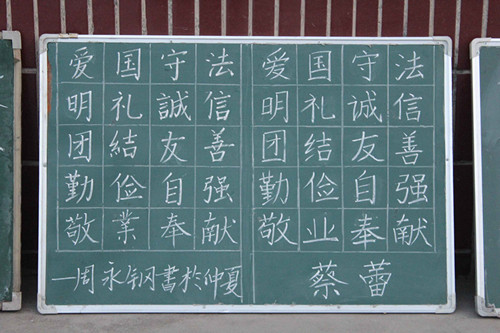 爱国守法
明礼誠信
团結友善
勤俭自强
敬業奉献
一周永钢書於仲夏
爱国守法
明礼诚信
团结友善
勤俭自强
敬业奉献
蔡蕾